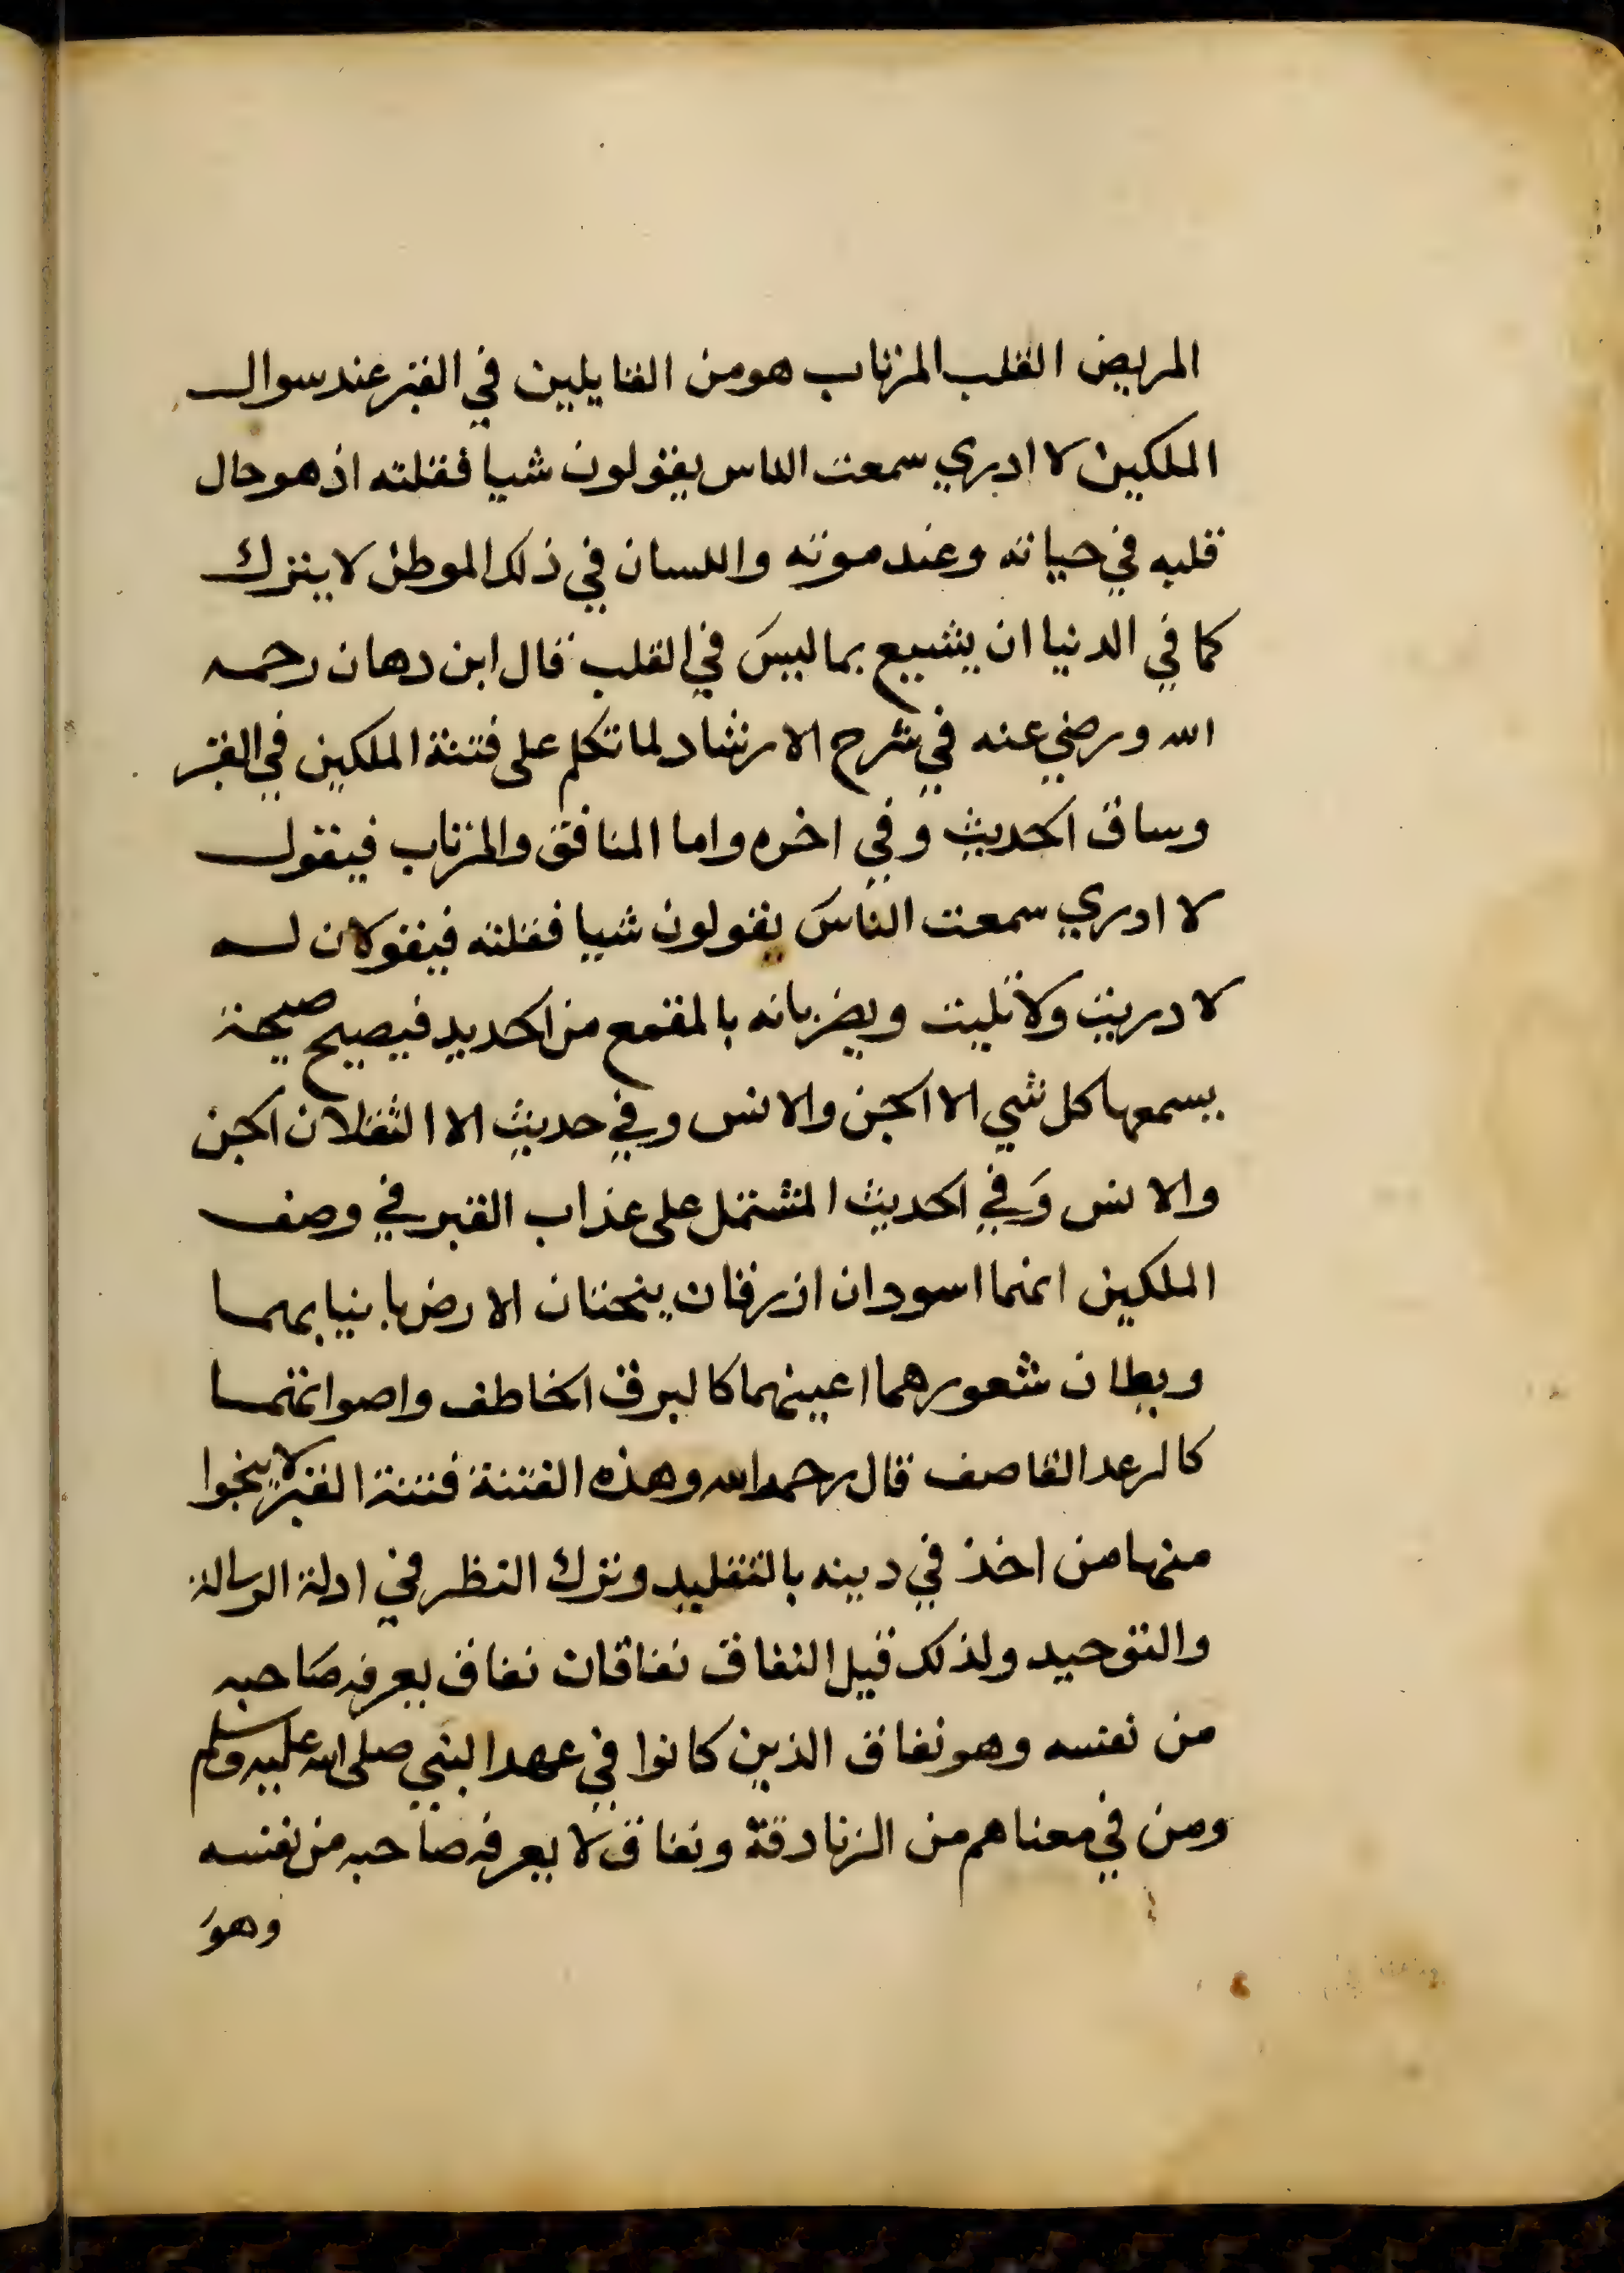 المريض القلب المرتاب هو من القايلين في القبر عند سوال
الملكين لا ادري سمعت الناس يقولون شيا فقلته اذ هو حال
قلبه في حياته وعند موته واللسان في ذلك الموطن لا يترك
كما في الدنيا ان يشيع بما ليس في القلب قال ابن دهان رحمه
الله ورضي عنه في شرح الارشاد لما تكلم على فتنة الملكين في القبر
وساق الحديث وفي اخره واما المنافق والمرتاب فيقول
لا ادري سمعت الناس يقولون شيا فقلته فيقولان له
لا دريت ولا تليت ويضربانه بالمقمع من الحديد فيصيح صيحة
يسمعها كل شي الا الجن والانس وفي حديث الا الثقلان الجن
والانس وفي الحديث المشتمل على عذاب القبر في وصف
الملكين انهما اسودان ازرقان ينحتان الارض بانيابهما
ويطان شعورهما اعينهما كالبرق الخاطف واصواتهما
كالرعد القاصف قال رحمه الله وهذه الفتنة فتنة القبر لا ينجوا
منها من اخذ في دينه بالتقليد وترك النظر في ادلة الرسالة
والتوحيد ولذلك قيل النفاق نفاقان نفاق يعرفه صاحبه
من نفسه وهو نفاق الذين كانوا في عهد النبي صلى الله عليه وسلم
ومن في معناهم من الزنادقة ونفاق لا يعرفه صاحبه من نفسه
وهو